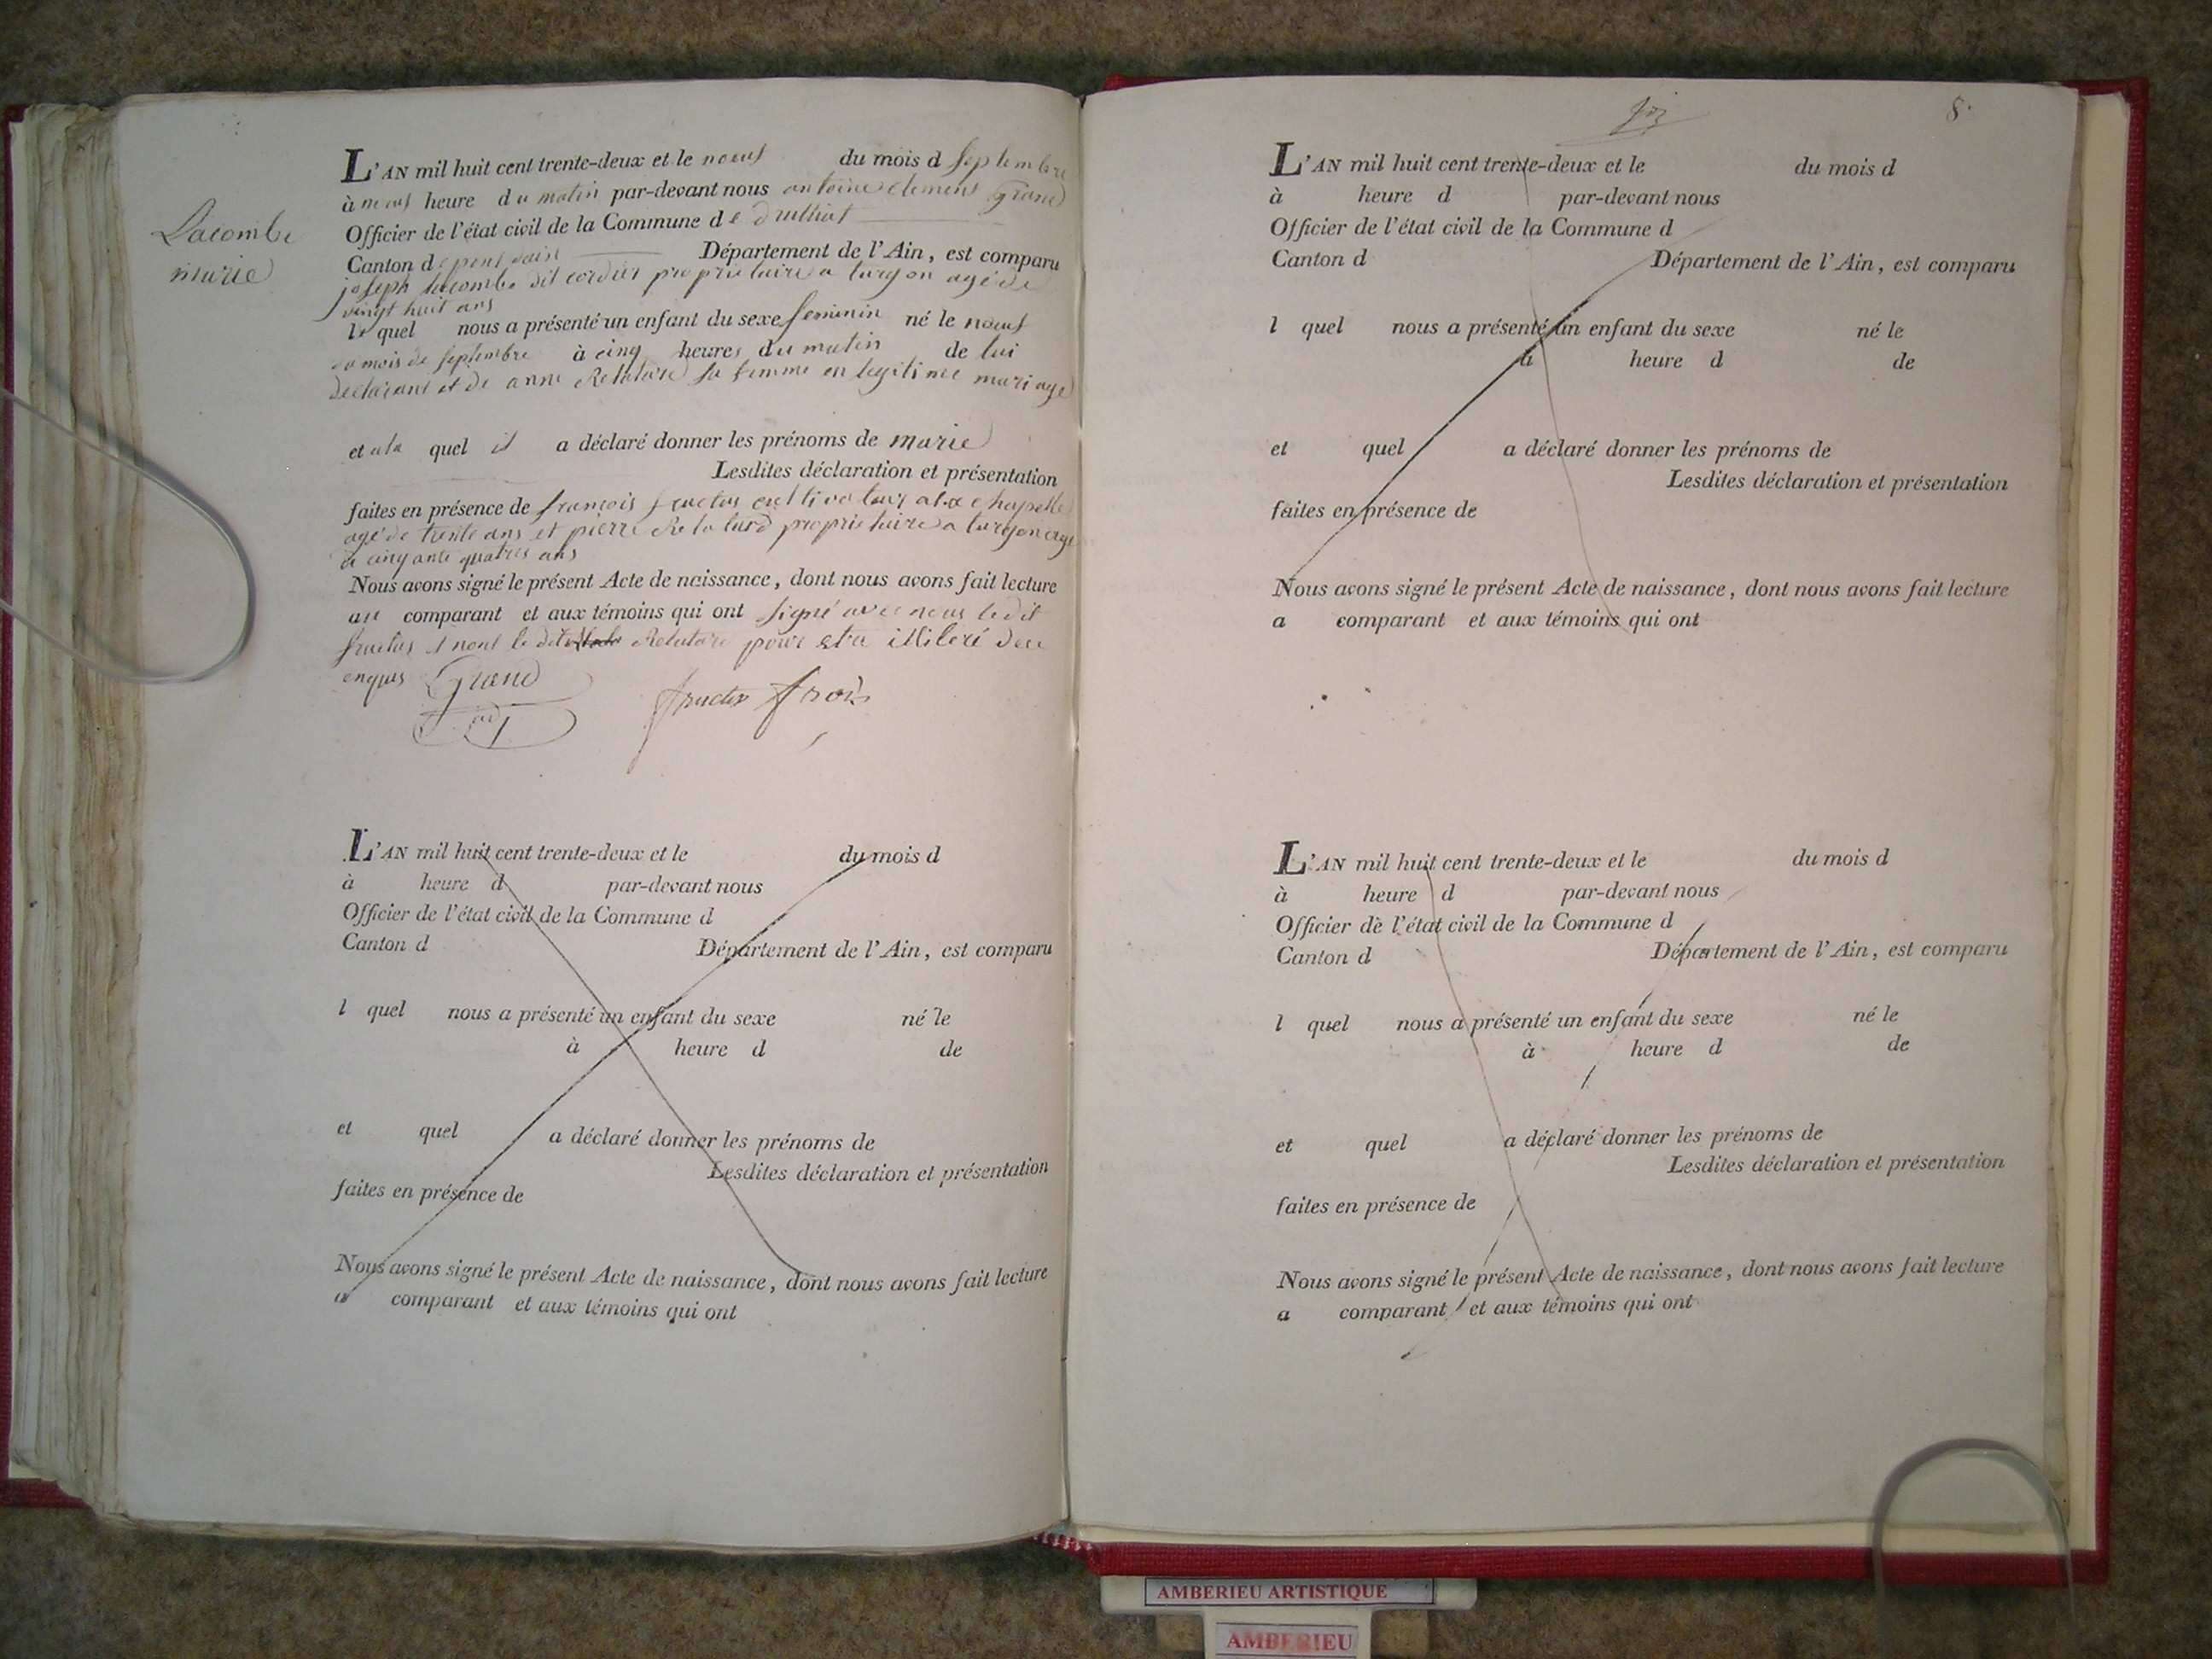 Lacombe
marie
L'AN mil huit cent trente-deux et le noeuf du mois d septembre
à neuf heure du matin par-devant nous antoine clement Grand
Officier de l'état civil de la Commune de druilliat
Canton de pont dain Département de l'Ain, est comparu
joseph lacombe dit cordier proprietaire a turgon agé de
vingt huit ans
le quel nous a présenté un enfant du sexe feminin né le noeuf
du mois de septembre à cinq heures du matin de lui
declarant et de anne sa femme en legitime mariage
et a la quel il a déclaré donner les prénoms de marie
Lesdites déclaration et présentation
faites en présence de françois fructus cultivateur a la chapelle
agé de trente ans et pierre proprietaire a turgon agé
de cinquante quatres ans
Nous avons signé le présent Acte de naissance, dont nous avons fait lecture
au comparant et aux témoins qui ont signé avec nous ledit
fructus et nont le dit pour etre illiteré de ce
enquis Grand
fructus frois
L'AN mil huit cent trente-deux et le du mois d
à heure d par-devant nous
Officier de l'état civil de la Commune d
Canton d Département de l'Ain, est comparu
l quel nous a présenté un enfant du sexe né le
à heure d de
et quel a déclaré donner les prénoms de
Lesdites déclaration et présentation
faites en présence de
Nous avons signé le présent Acte de naissance, dont nous avons fait lecture
a comparant et aux témoins qui ont
8.
L'AN mil huit cent trente-deux et le du mois d
à heure d par-devant nous
Officier de l'état civil de la Commune d
Canton d Département de l'Ain, est comparu
l quel nous a présenté un enfant du sexe né le
à heure d de
et quel a déclaré donner les prénoms de
Lesdites déclaration et présentation
faites en présence de
Nous avons signé le présent Acte de naissance, dont nous avons fait lecture
a comparant et aux témoins qui ont
L'AN mil huit cent trente-deux et le du mois d
à heure d par-devant nous
Officier de l'état civil de la Commune d
Canton d Département de l'Ain, est comparu
l quel nous a présenté un enfant du sexe né le
à heure d de
et quel a déclaré donner les prénoms de
Lesdites déclaration et présentation
faites en présence de
Nous avons signé le présent Acte de naissance, dont nous avons fait lecture
a comparant et aux témoins qui ont
AMBERIEU ARTISTIQUE
AMBERIEU